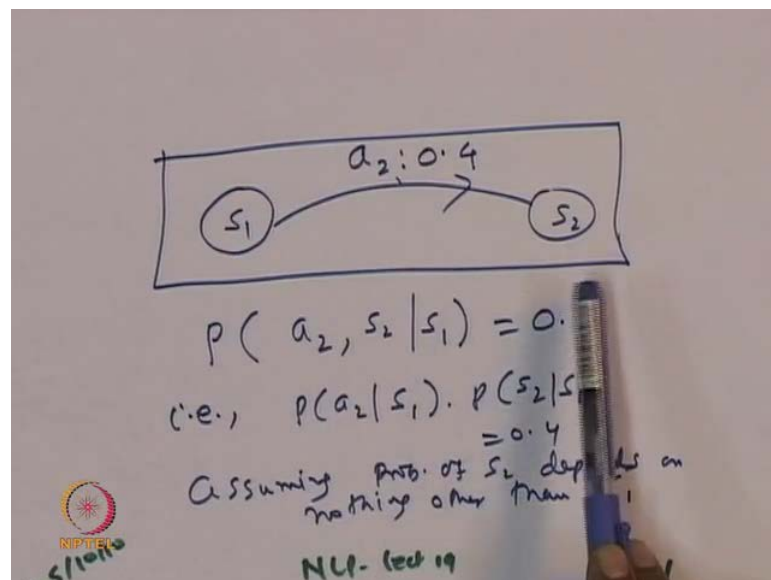 a₂: 0.4
S₁ S₂
P( a₂, S₂ | S₁ ) = 0.
i.e., P(a₂ | S₁). P(S₂ | S
= 0.4
Assuming prob. of S₂ depends on
nothing other than
NPTEL
5/10/10 NLP- lect 19